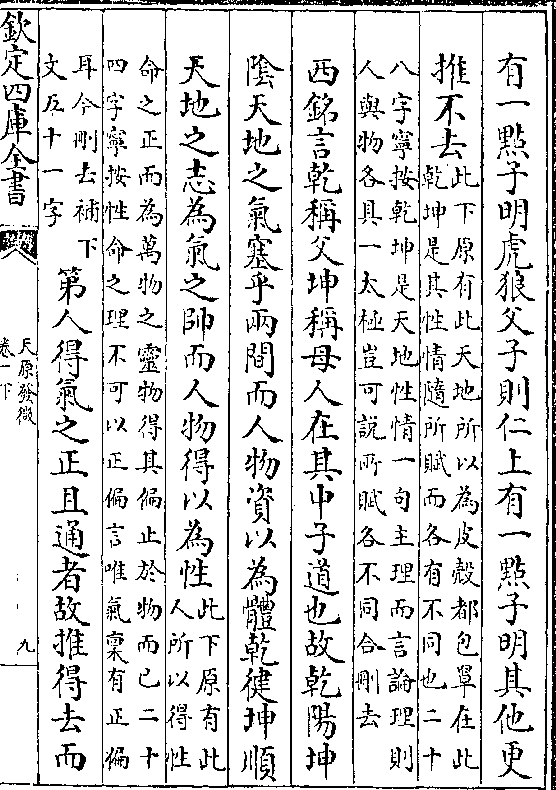 有一點子明虎狼父子則仁上有一點子明其他更
推不去
此下原有此天地所以為皮殼都包罩在此
乾坤是其性情隨所賦而各有不同也二十
八字寧按乾坤是天地性情一句主理而言論理則
人與物各具一太極豈可說所賦各不同合刪去
西銘言乾稱父坤稱母人在其中子道也故乾陽坤
陰天地之氣塞乎兩間而人物資以為體乾健坤順
天地之志為氣之帥而人物得以為性
此下原有此
人所以得性
命之正而為萬物之靈物得其偏止於物而已二十
四字寧按性命之理不可以正偏言唯氣稟有正偏
耳今刪去補下
文五十一字
第人得氣之正且通者故推得去而
欽定四庫全書
天原發微
卷一下
九